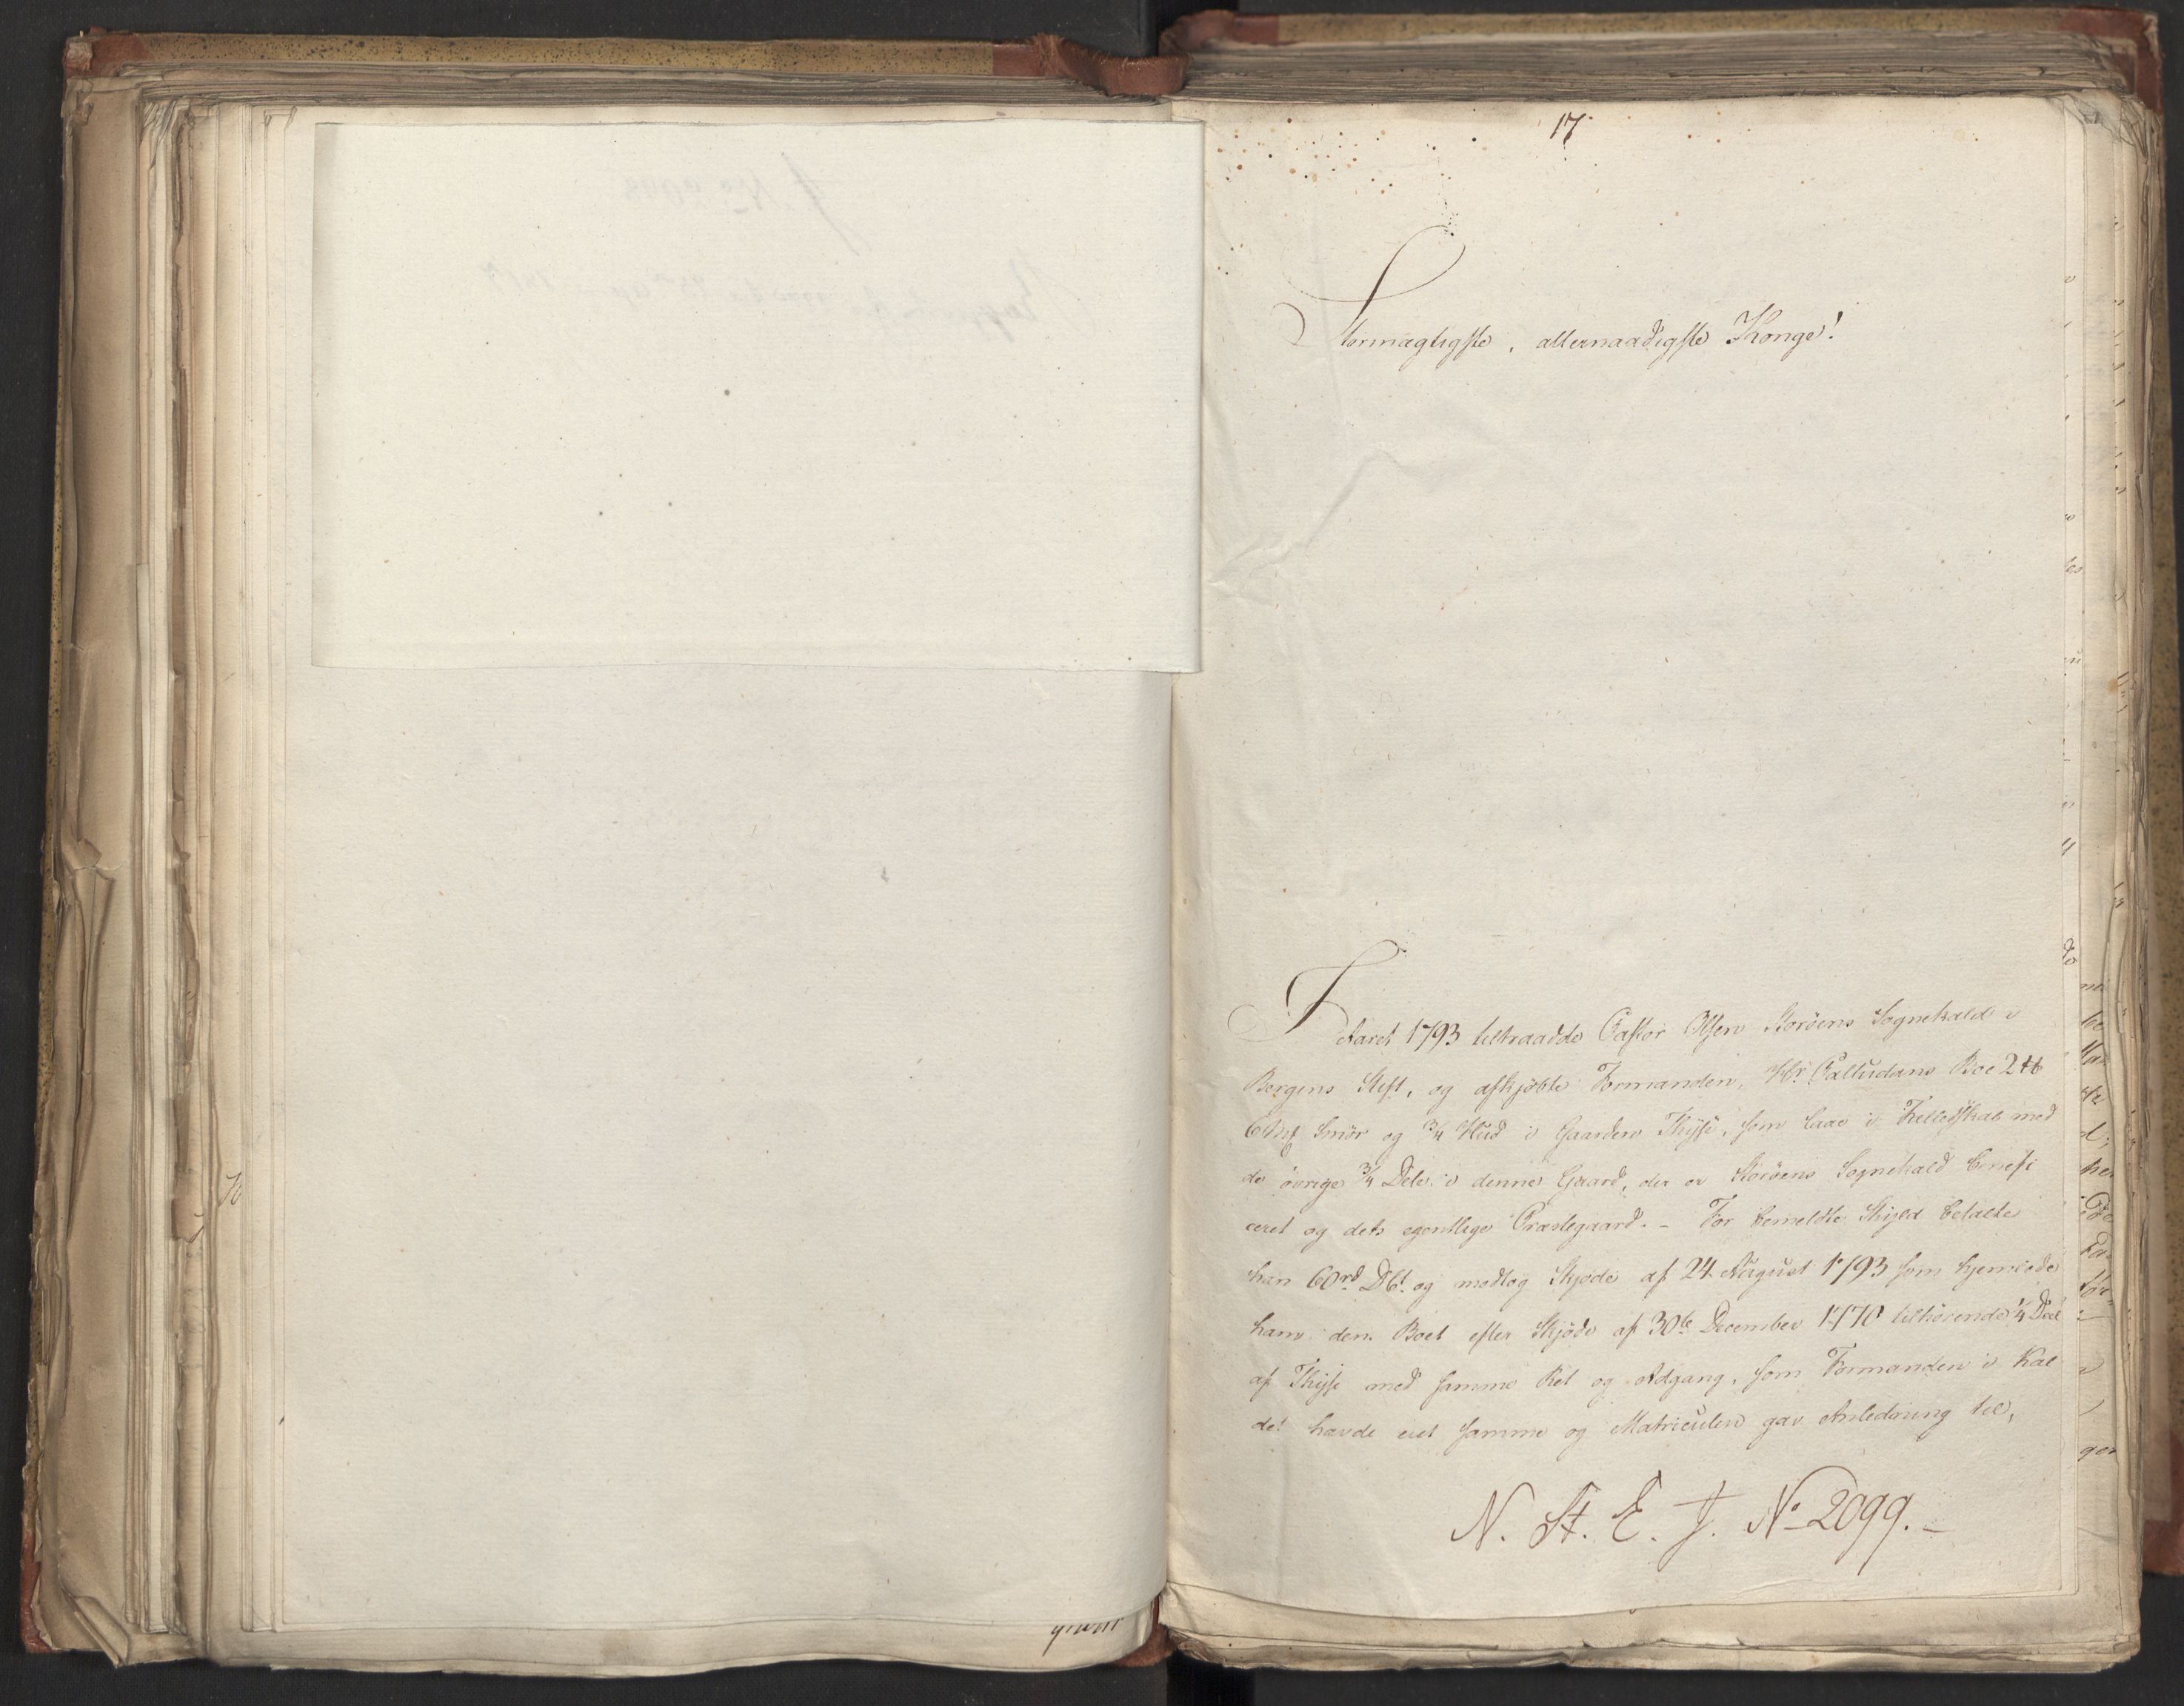 17
Stormægtigste, allernaadigste Konge!
I Aaret 1793 tiltraadde Pastor Olsen Korsens Sognekald i
Bergens Stift, og afkjøbte Formanden, Hr Palludans Boe 2 
6 Smör og 3/4 Hud i Gaarden Thysse, som laae i Fællesskab med
de övrige 3/4 Dele i denne Gaard, der er Sognekald benefi
ceret og dets egentlige Præstegaard. - For bemeldte Skyld betalte
han 60rd DCt. og modtog Skjøde af 24 August 1793 som hjemlede
ham den Boet efter Skjöde af 30te December 1770 tilhörende 1/4 Deel
af Thysse med samme Ret og Adgang, som Formanden i Kal
det havde eiet samme og Matriculen gav Anledning til,
N. St. E. J. No 2099. -